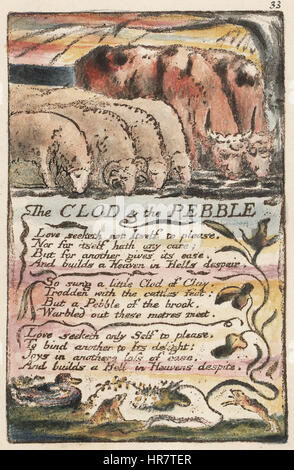 33
The CLOD & the PEBBLE
Love seeketh not Itself to please.
Nor for itself hath any care;
But for another gives its ease.
And builds a Heaven in Hells despair.
So sung a little Clod of Clay,
Trodden with the cattles feet:
But a Pebble of the brook.
Warbled out these metres meet.
Love seeketh only Self to please,
To bind another to Its delight:
Joys in anothers loss of ease.
And builds a Hell in Heavens despite.
alamy stock photo
HR7TER